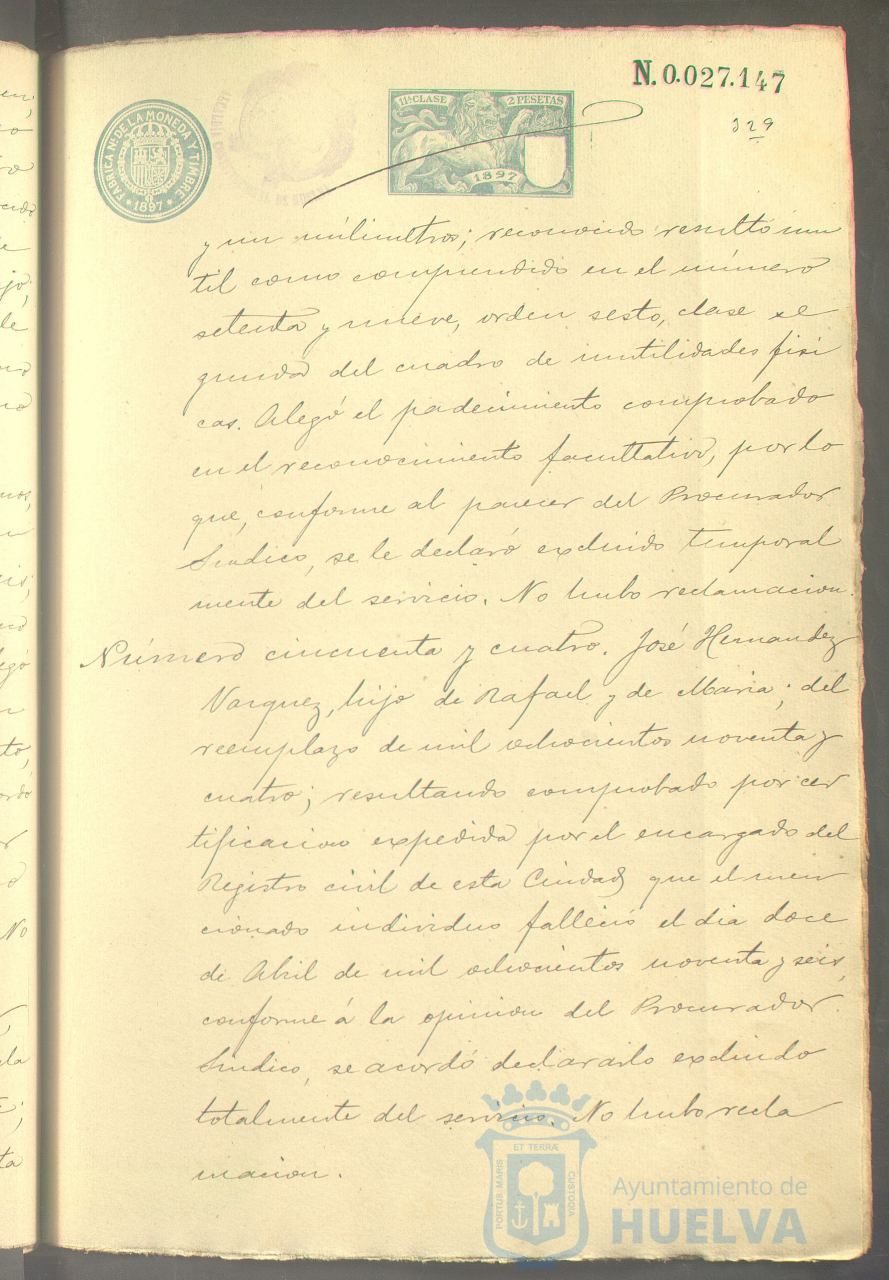 N.0.027.147
329
FABRICA NL. DE LA MONEDA Y TIMBRE
* 1897 *
11ª CLASE 2 PESETAS
1897
y un milimetros; reconocido resultó inu
til como comprendido en el número
setenta y nueve, orden sesto, clase se
gunda del cuadro de inutilidades fisi
cas. Alegó el padecimiento comprobado
en el reconocimiento facultativo, por lo
que, conforme al parecer del Procurador
Sindico, se le declaró excluido temporal
mente del servicio. No hubo reclamacion.
Número cincuenta y cuatro. José Hernandez
Varquez, hijo de Rafael y de Maria; del
reemplazo de mil ochocientos noventa y
cuatro; resultando comprobado por cer
tificacion expedida por el encargado del
Registro civil de esta Ciudad que el men
cionado individuo falleció el dia doce
de Abril de mil ochocientos noventa y seis,
conforme á la opinion del Procurador
Sindico, se acordó declararlo excluido
totalmente del servicio. No hubo recla
macion.
PORTUS MARIS ET TERRÆ CUSTODIA
Ayuntamiento de
HUELVA